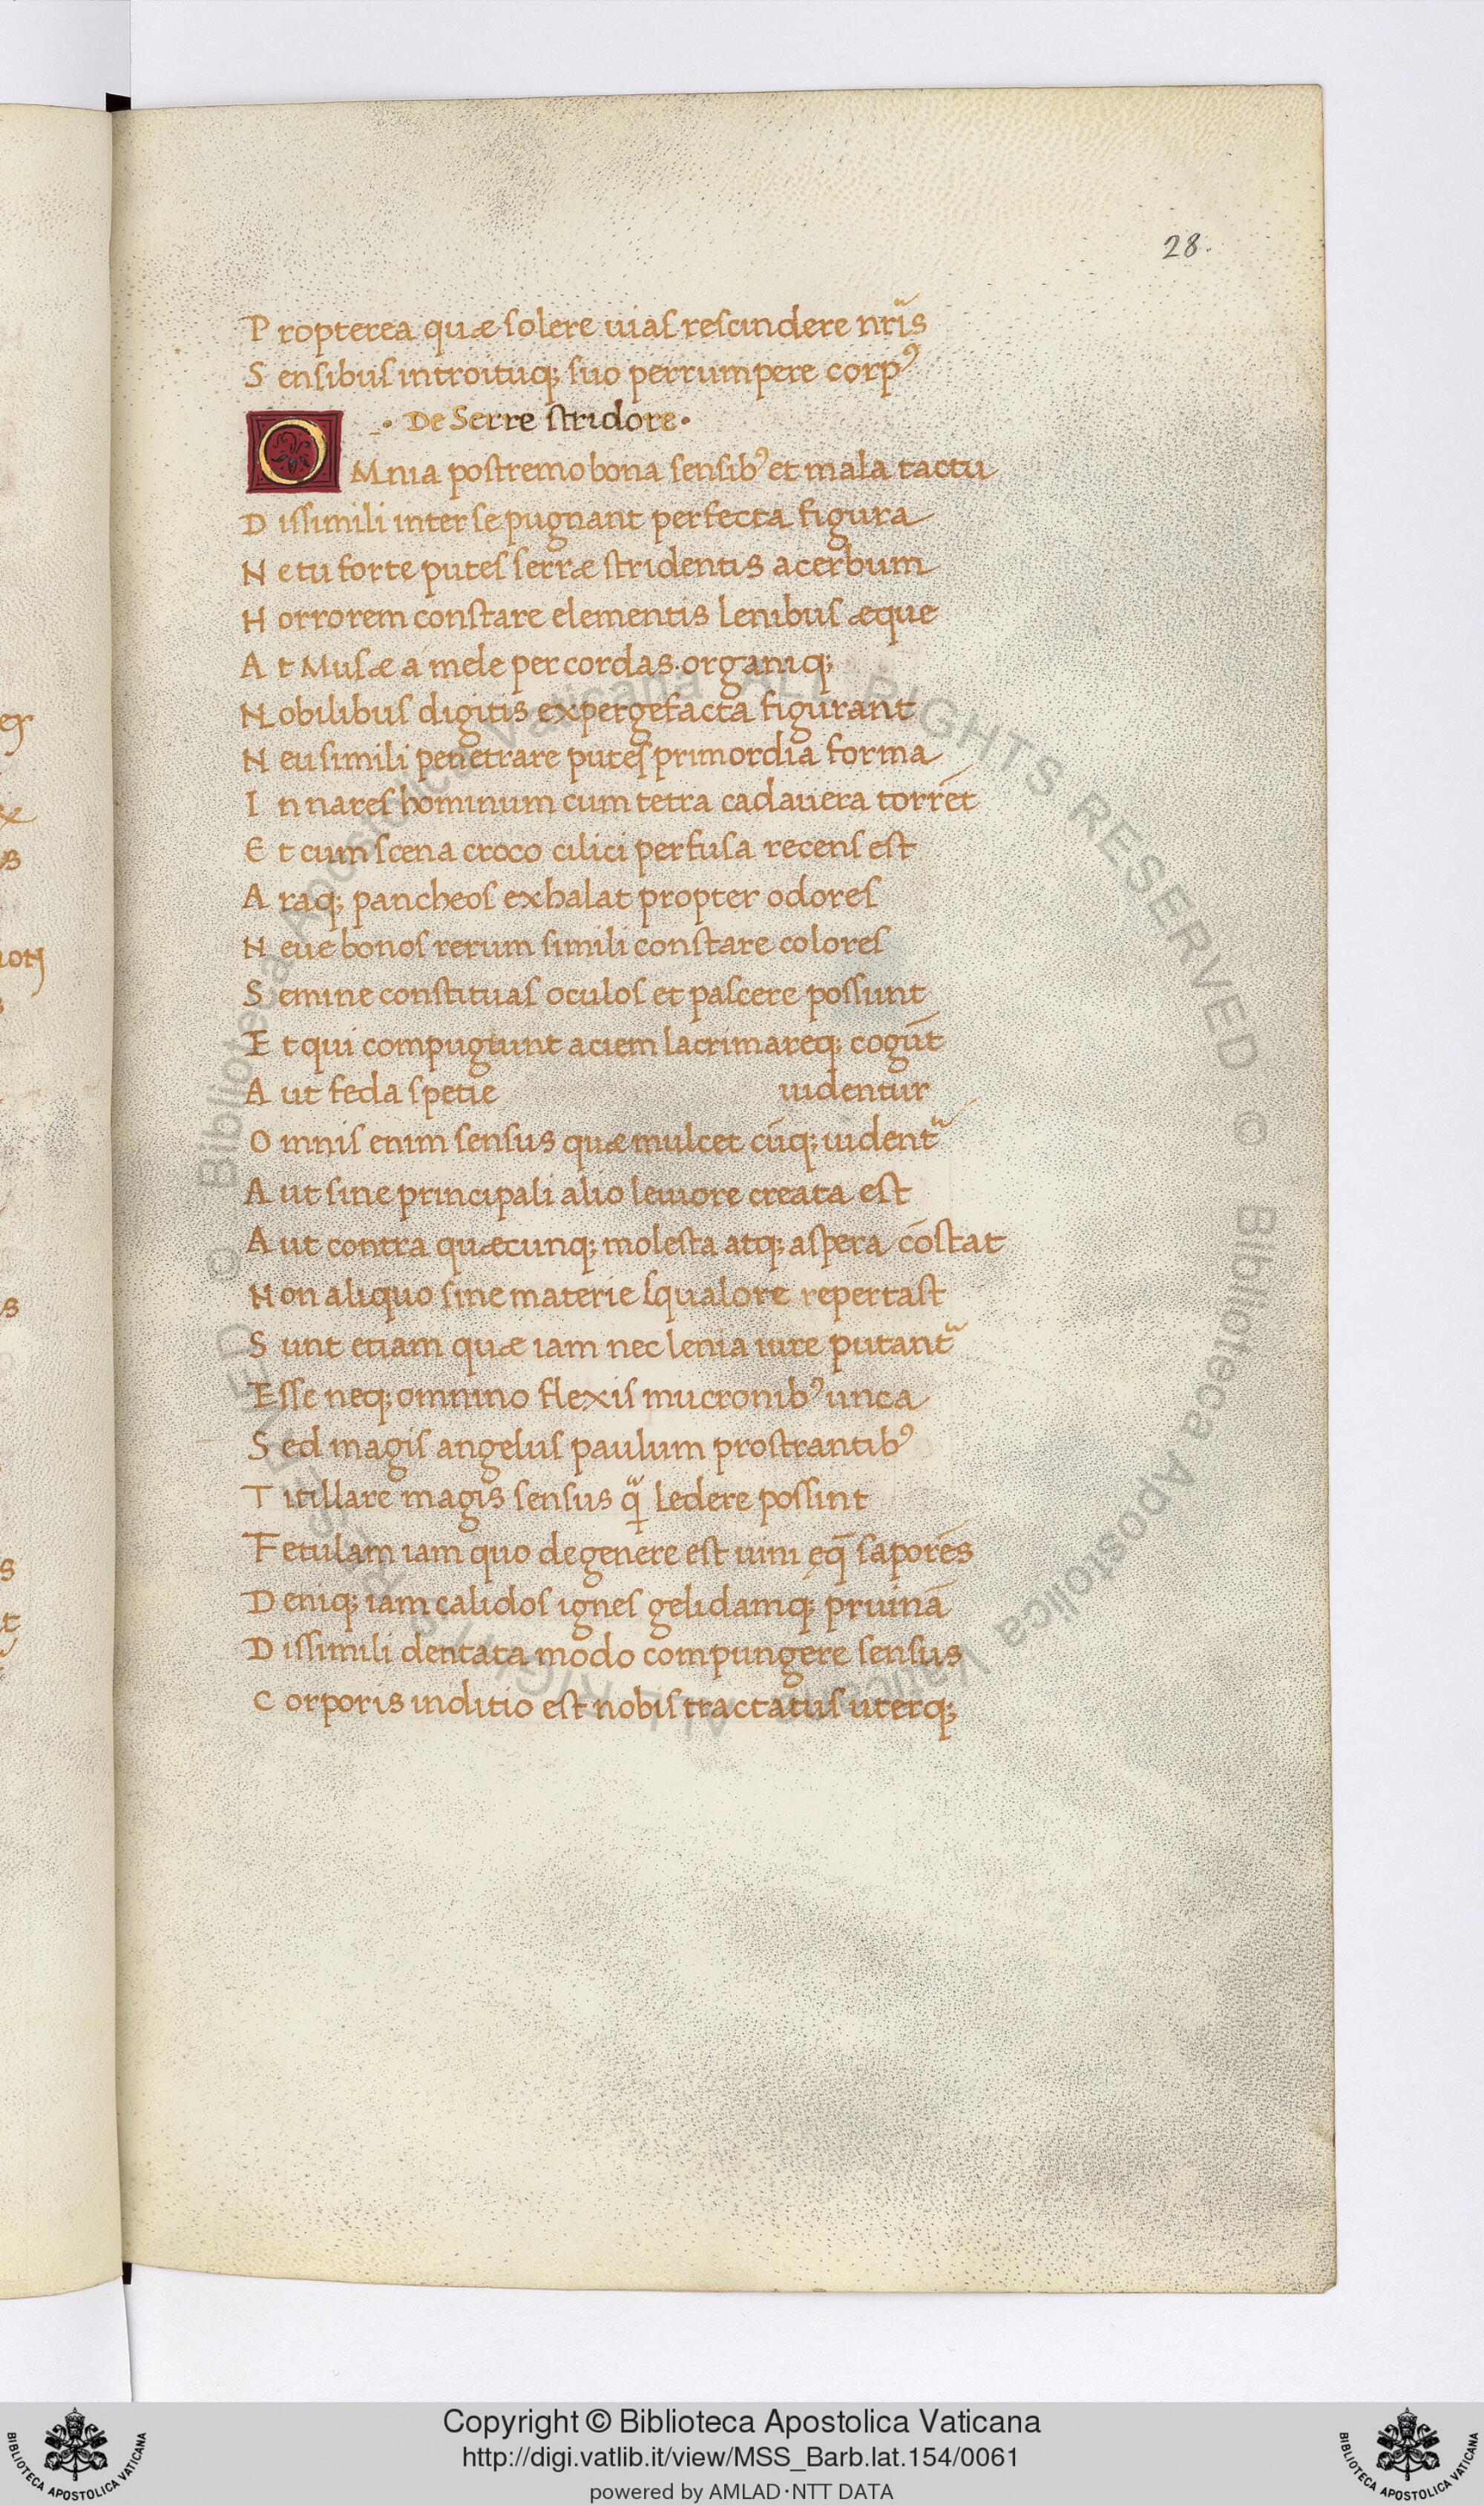 28.
Propterea quæ solere uias rescindere nr̃is
Sensibus introituq; suo perrumpere corpꝰ
De Serre stridore
OMnia postremo bona sensibꝰ et mala tactu
Dissimili inter se pugnant perfecta figura
Ne tu forte putes serræ stridentis acerbum
Horrorem constare elementis lenibus æque
At Musæ a mele per cordas organiq;
Nobilibus digitis expergefacta figurant
Neu simili penetrare putes primordia forma
In nares hominum cum tetra cadauera torrēt
Et cum scena croco cilici perfusa recens est
Araq; pancheos exhalat propter odores
Neue bonos rerum simili constare colores
Semine constituas oculos et pascere possunt
Et qui compugiunt aciem lacrimareq; cogūt
Aut feda spetie uidentur
Omnis enim sensus quæ mulcet cūq; uident᷑
Aut sine principali alio leuiore creata est
Aut contra quæcunq; molesta atq; aspera cōstat
Non aliquo sine materie squalore repertast
Sunt etiam quæ iam nec lenia iure putant᷑
Esse neq; omnino flexis mucronibꝰ unca
Sed magis angelus paulum prostrantibꝰ
Titillare magis sensus ꝙ̃ ledere possint
Fetulam iam quo de genere est uini eq̄ saporēs
Deniq; iam calidos ignes gelidamq; pruinā
Dissimili dentata modo compungere sensus
Corporis inditio est nobis tractatus uterq;
Copyright © Biblioteca Apostolica Vaticana
http://digi.vatlib.it/view/MSS_Barb.lat.154/0061
powered by AMLAD·NTT DATA